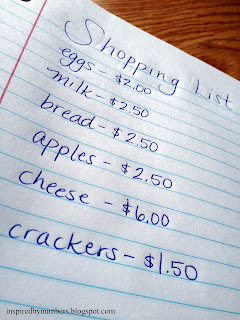 Shopping List
eggs - $2.00
milk - $2.50
bread - $2.50
apples - $2.50
cheese - $6.00
crackers - $1.50
inspiredbynumbers.blogspot.com